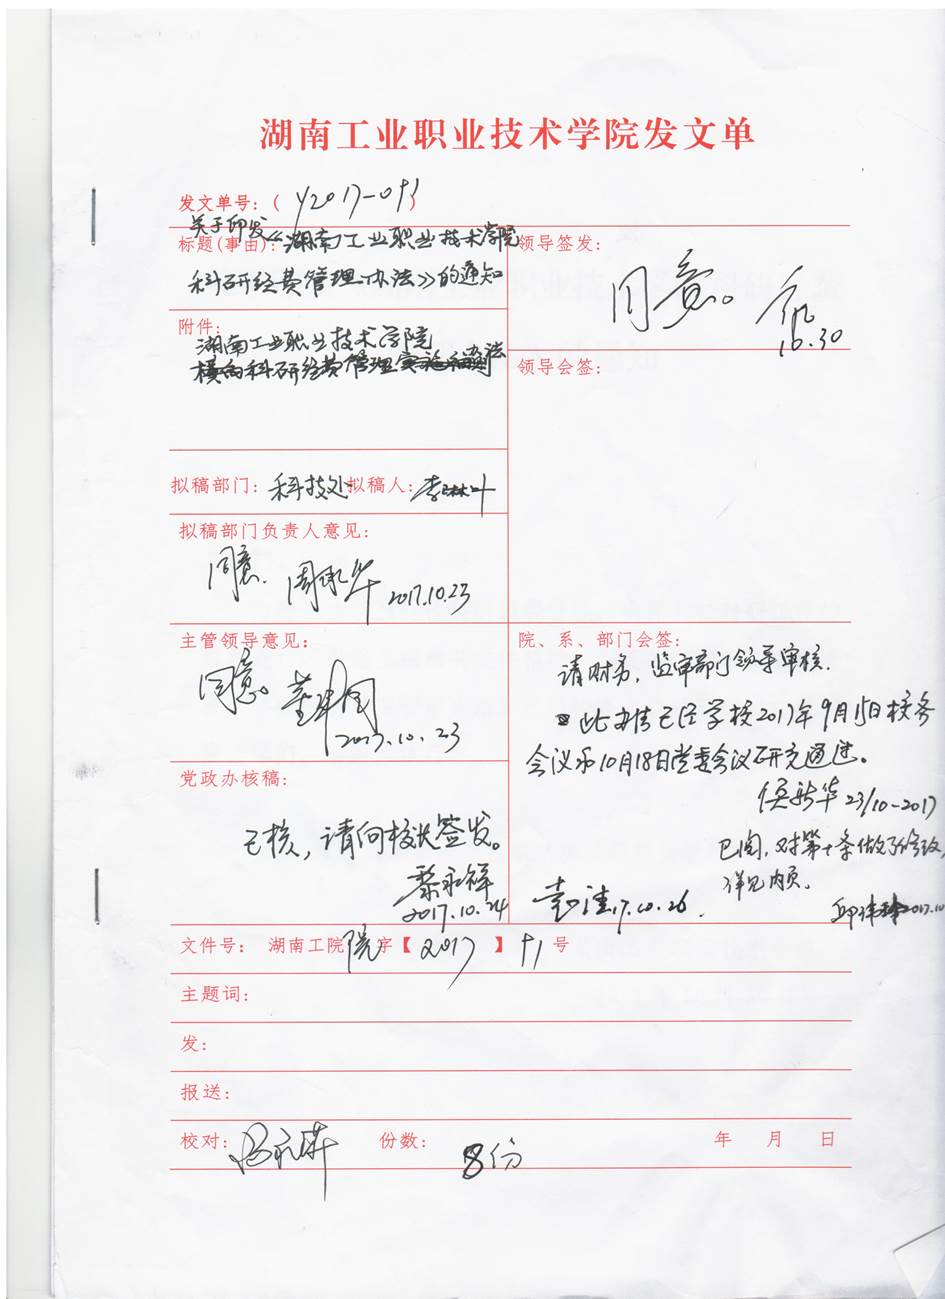 湖南工业职业技术学院发文单
发文单号：( Y2017-091 )
关于印发《湖南工业职业技术学院
标题(事由)：
科研经费管理办法》的通知
领导签发：
同意。
10.30
附件：
湖南工业职业技术学院
横向科研经费管理实施
办法
领导会签：
拟稿部门：科技处
拟稿人：李
拟稿部门负责人意见：
同意. 周承华 2017.10.23
主管领导意见：
同意。董
2017.10.23
院、系、部门会签：
请财务，监审部门领导审核.
此办法已经学校2017年9月15日校务
会议和10月18日党委会议研究通过。
侯新华 23/10-2017
已阅，对第十条做了修改，
详见内页。
17.10.26.
2017.10
党政办核稿：
已核，请向校长签发。
黎永祥
2017.10.24
文件号： 湖南工院院字【2017】91号
主题词：
发：
报送：
校对：
份数：8份
年 月 日